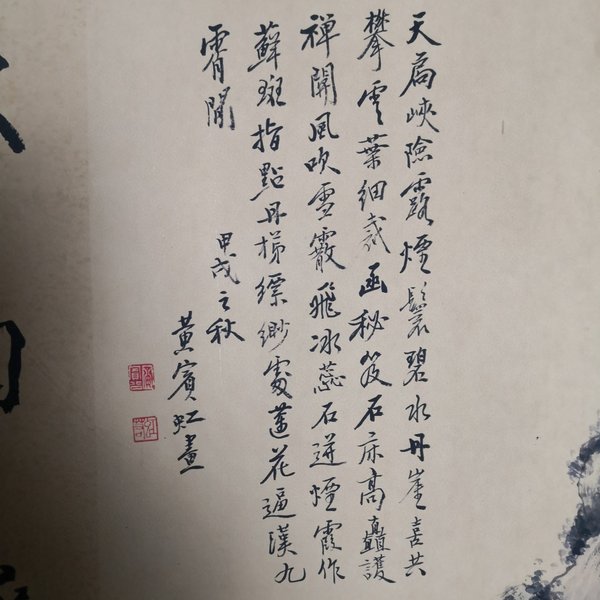 天扃峽險露煙鬟碧水丹崖喜共
攀雲葉細裁函秘笈石床高矗護
禪關風吹雪散飛冰蕊石迸煙霞作
蘚斑指點丹梯縹緲處蓮花逼漢九
霄間
甲戌之秋
黃賓虹畫